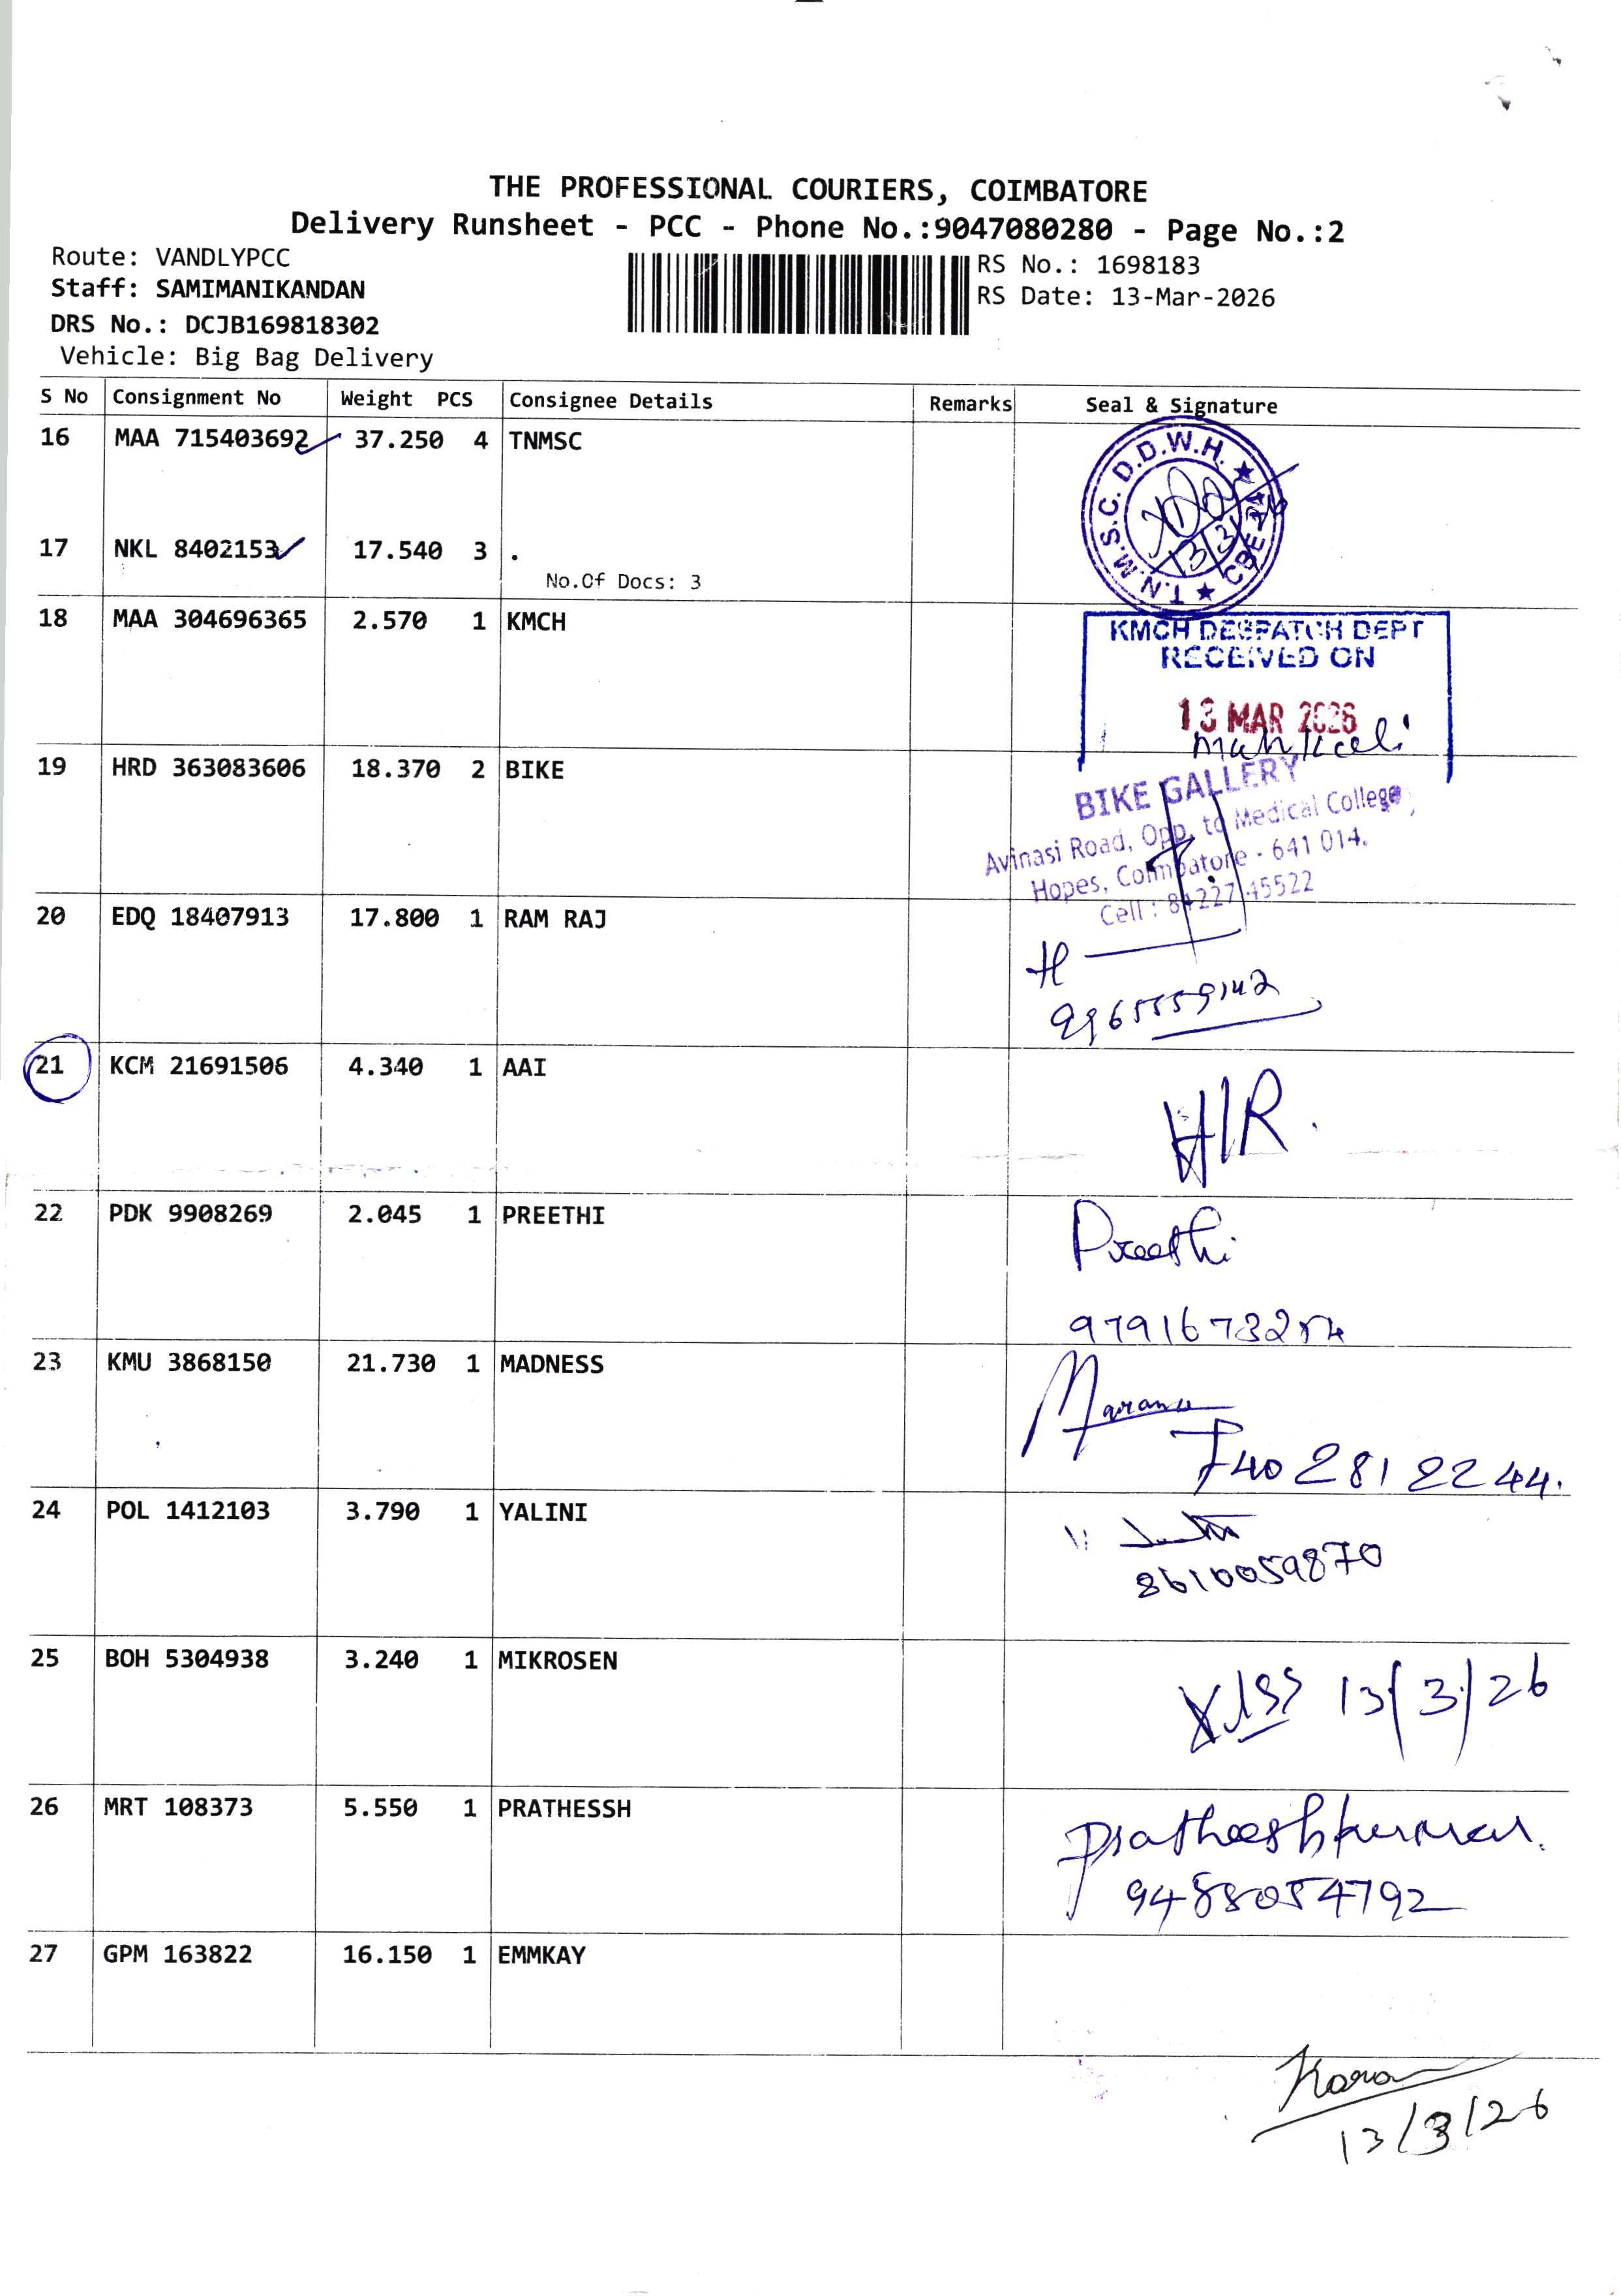 THE PROFESSIONAL COURIERS, COIMBATORE
Delivery Runsheet - PCC - Phone No.:9047080280 - Page No.:2
Route: VANDLYPCC
RS No.: 1698183
Staff: SAMIMANIKANDAN
RS Date: 13-Mar-2026
DRS No.: DCJB169818302
Vehicle: Big Bag Delivery
S No Consignment No Weight PCS Consignee Details Remarks Seal & Signature
16 MAA 715403692 37.250 4 TNMSC
T.N.M.S.C. D.D.W.H. ★ CBE-24 ★
17 NKL 8402153 17.540 3 .
No.Of Docs: 3
18 MAA 304696365 2.570 1 KMCH
KMCH DESPATCH DEPT
RECEIVED ON
13 MAR 2026
19 HRD 363083606 18.370 2 BIKE
BIKE GALLERY
Avinasi Road, Opp. to Medical College,
Hopes, Coimbatore - 641 014.
Cell : 84227 45522
20 EDQ 18407913 17.800 1 RAM RAJ
21 KCM 21691506 4.340 1 AAI
H/R.
22 PDK 9908269 2.045 1 PREETHI
Preethi
23 KMU 3868150 21.730 1 MADNESS
24 POL 1412103 3.790 1 YALINI
8610059870
25 BOH 5304938 3.240 1 MIKROSEN
13/3/26
26 MRT 108373 5.550 1 PRATHESSH
Pratheeshkumar.
9488054792
27 GPM 163822 16.150 1 EMMKAY
13/3/26